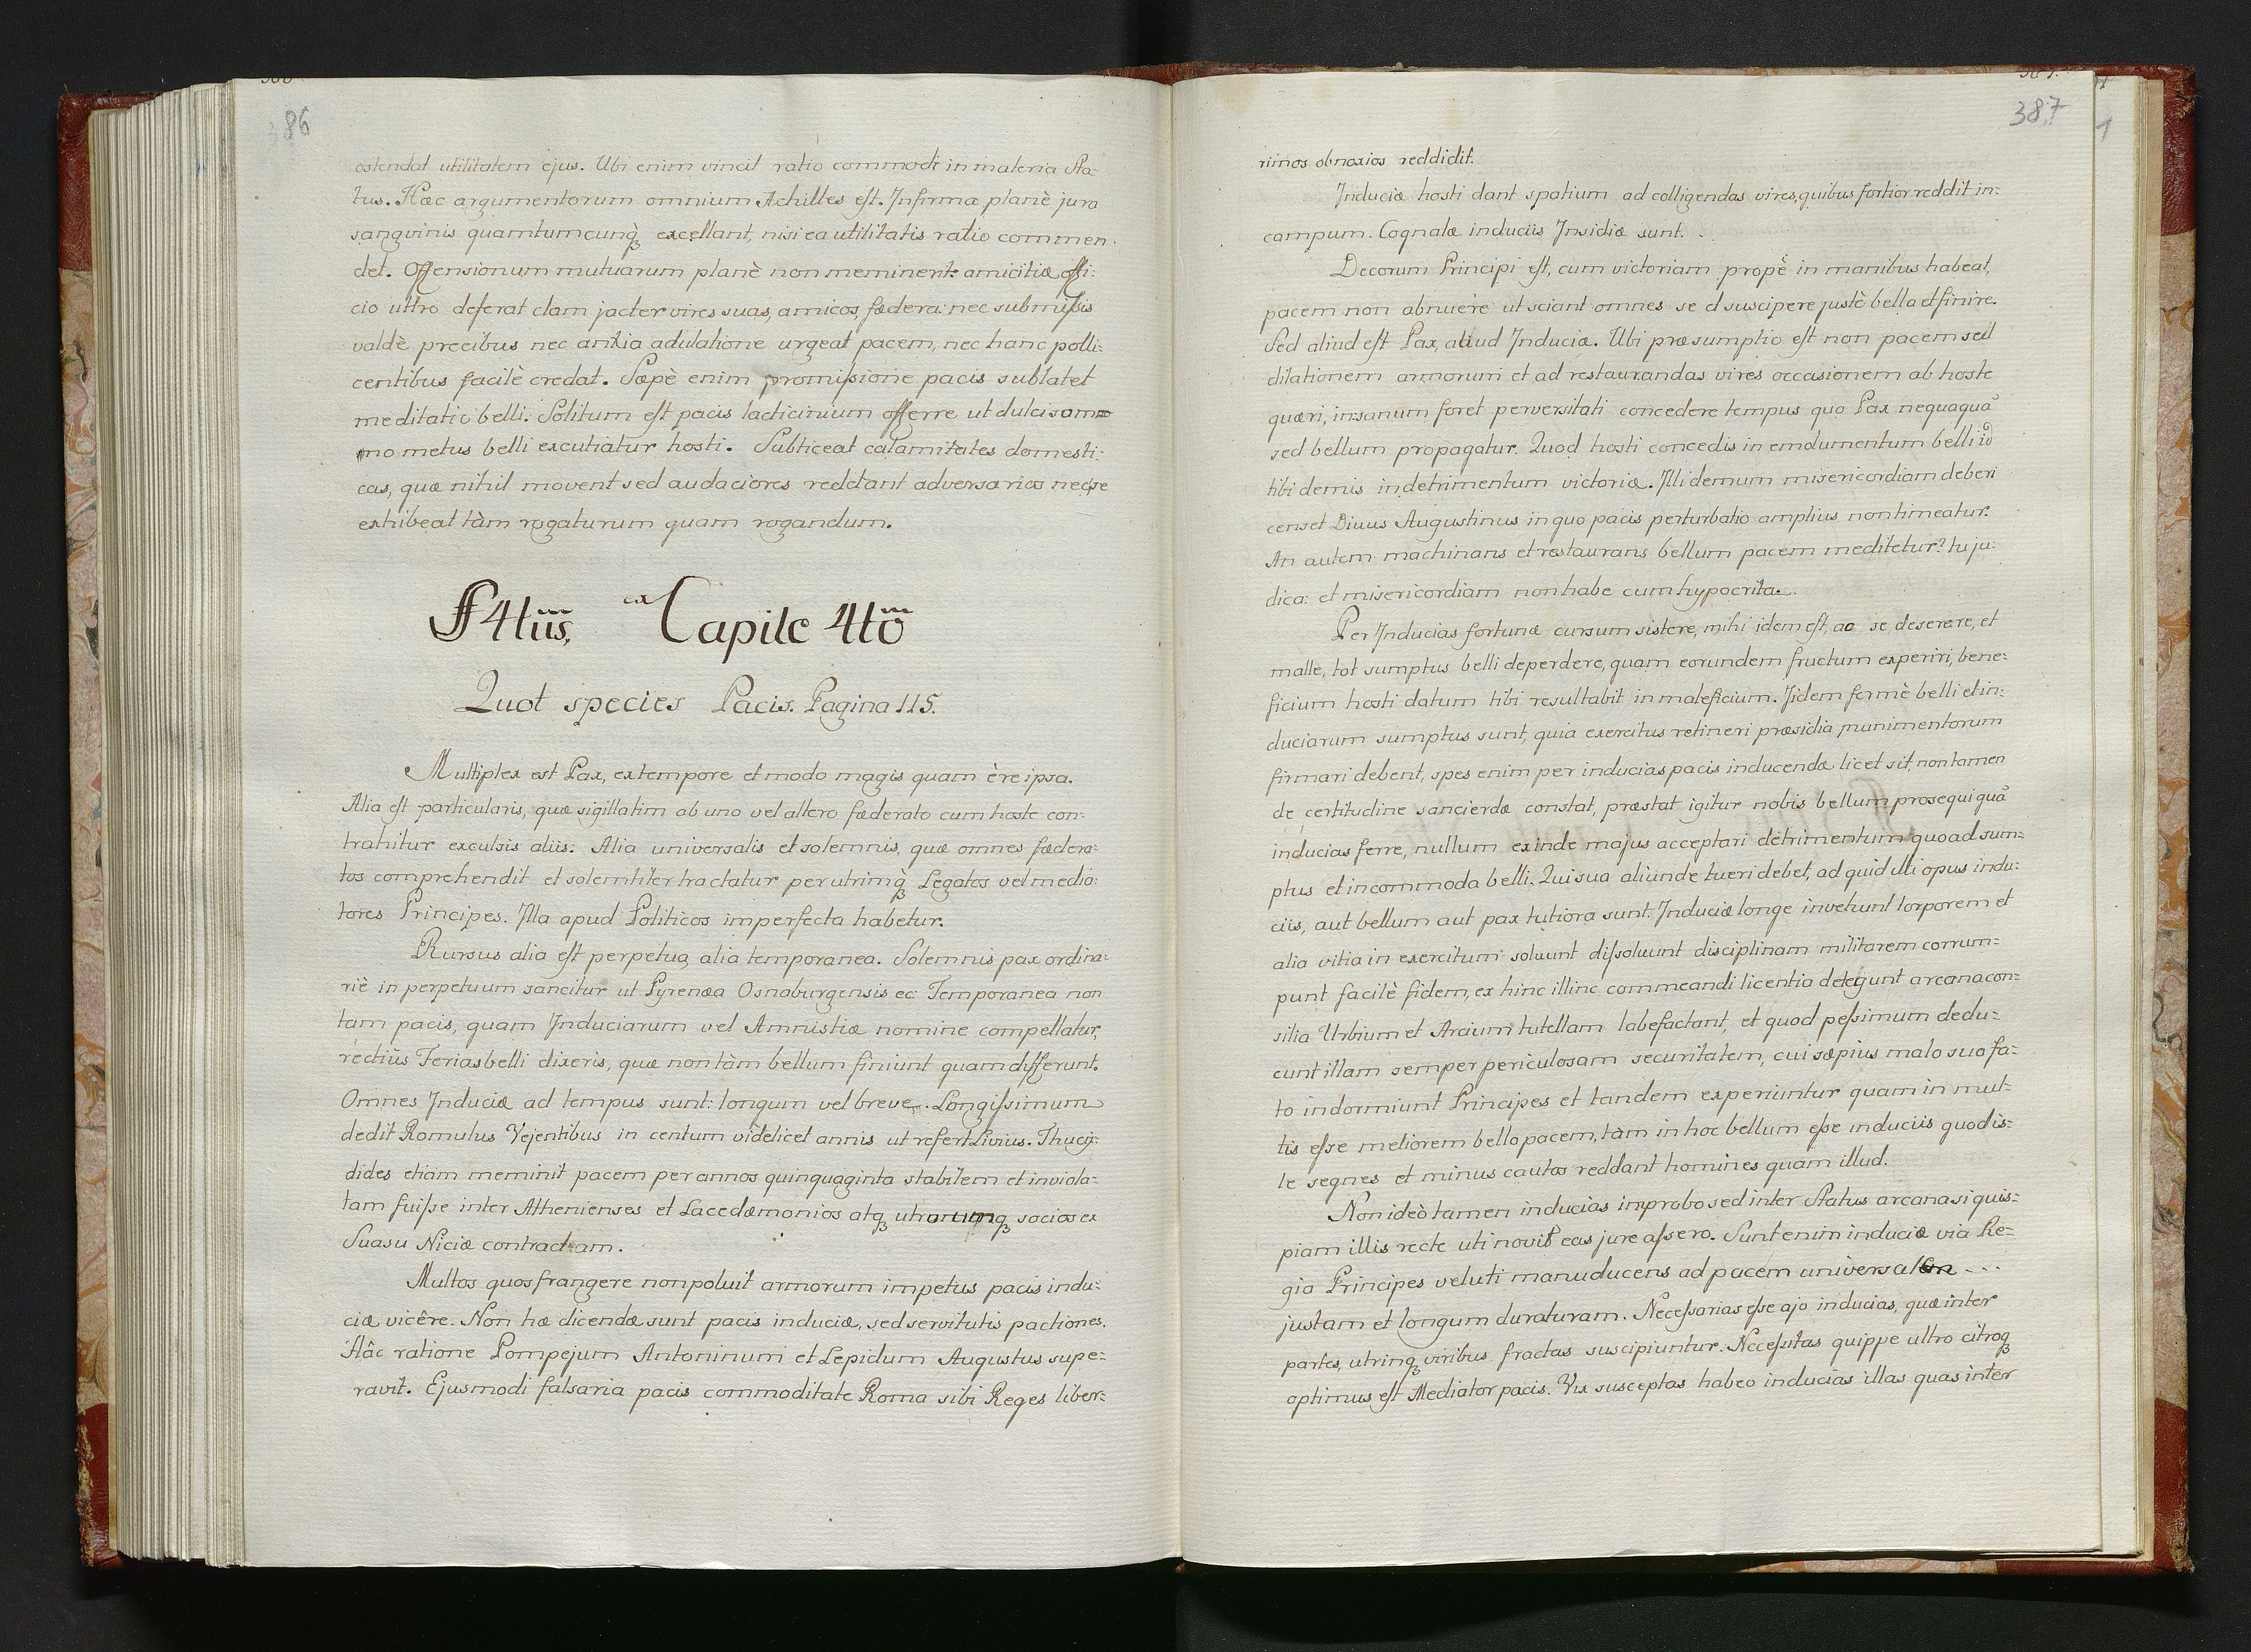 386
ostendat utilitatem ejus. Ubi enim vincit ratio commodi in materia Sta-
tus. Hæc argumentorum omnium Achilles est. Infirma planè jura
sangvinis quamtumcunq̀ꝫ excellant, nisi ea utilitatis ratio commen.
det. Offensionum mutuarum planè non meminerit: amicitiæ offi:
cio ultro deferat clam jacter vires suas, amicos, fædera: nec submissis
valdè precibus nec anxia adulatione urgeat pacem, nec hanc polli:
centibus facilè credat. Sæpè enim promissione pacis sublatet
meditatio belli. Solitum est pacis lacticinium offerre ut dulci som=
no metus belli excutiatur hosti. Subticeat calamitates domesti:
cas, quæ nihil movent sed audaciores reddant adversarios necse
exhibeat tàm rogaturum quam rogandum.
§ 4tus, ex Capite 4to
Quot species Pacis. Pagina 115.
Multiplex est Pax, ex tempore et modo magis quam è re ipsa.
Alia est particularis, quæ sigillatim ab uno vel altero fæderato cum hoste con:
trahitur exculsis aliis: Alia universalis et solemnis, quæ omnes fædera:
tos comprehendit et solemtiter tractatur per utrimq̀ꝫ Legatos vel media:
tores Principes. Illa apud Politicos imperfecta habetur.
Rursus alia est perpetua, alia temporanea. Solemnis pax ordina:
riè in perpetuum sancitur ut Pyrenæa Osnaburgensis ec: Temporanea non
tam pacis, quam Induciarum vel Amnistiæ nomine compellatur,
rectiùs Ferias belli dixeris, quæ non tàm bellum finiunt quam differunt.
Omnes Induciæ ad tempus sunt: longum vel breve. Longissimum
dedit Romulus Vejentibus in centum videlicet annis ut refert Livius. Thucy:
dides etiam meminit pacem per annos quinquaginta stabilem et inviola:
tam fuisse inter Athenienses et Lacedæmonios atqꝫ utrorumqꝫ socios ex
Suasu Niciæ contractam.
Multos quos frangere non poluit armorum impetus pacis indu:
ciæ vicêre. Non hæ dicendæ sunt pacis induciæ, sed servitutis pactiones.
Hâc ratione Pompejum Antoninum et Lepidum Augustus supe:
ravit. Ejusmodi falsaria pacis commoditate Roma sibi Reges liber:
387
rimos obnoxios reddidit.
Induciæ hosti dant spatium ad colligendas vires, quibus fortior reddit in:
campum. Cognatæ induciis Insidiæ sunt.
Decorum Principi est, cum victoriam propè in manibus habeat,
pacem non abnuere ut sciant omnes se et suscipere justè bella et finire.
Sed aliud est Pax, aliud Induciæ. Ubi præsumptio est non pacem sed
dilationem armorum et ad restaurandas vires occasionem ab hoste
quæri, insanum foret perversitati concedere tempus quo Pax nequaquã
sed bellum propagatur. Quod hosti concedis in emolumentum belli id
tibi demis in detrimentum victoriæ. Illi demum misericordiam deberi
censet Divus Augustinus in quo pacis perturbatio amplius non timeatur.
An autem machinans et restaurans bellum pacem meditetur? tu ju:
dica: et misericordiam non habe cum hypocrita.
Per Inducias fortunæ cursum sistere, mihi idem est, ac se deserere, et
malle, tot sumptus belli deperdere, quam eorundem fructum experiri, bene:
ficium hosti datum tibi resultabit in maleficium. Iidem fermè belli et in:
duciarum sumptus sunt, quia exercitus retineri præsidia munimentorum
firmari debent, spes enim per inducias pacis inducendæ licet sit, non tamen
de certitudine sancierdæ constat, præstat igitur nobis bellum prosequi quã
inducias ferre, nullum exinde majus acceptari detrimentum quoad sum=
ptus et incommoda belli. Qui sua aliunde tueri debet, ad quid illi opus indu:
ciis, aut bellum aut pax tutiora sunt. Induciæ longe invehunt torporem et
alia vitia in exercitum solvunt dissolvunt disciplinam militarem corrum=
punt facilè fidem, ex hinc illinc commeandi licentia detegunt arcana con=
silia Urbium et Arcium tutellam labefactant, et quod pessimum dedu=
cunt illam semper periculosam securitatem, cui sæpius malo suo fa=
to indormiunt Principes et tandem experiuntur quam in mul=
tis esse meliorem bello pacem, tàm in hoc bellum esse induciis quod is=
te segnes et minus cautos reddant homines quam illud.
Non ideò tamen inducias improbo sed inter Status arcana si quis=
piam illis recte uti novit eas jure assero. Sunt enim induciæ via Re=
gia Principes veluti manuducens ad pacem universalem - - -
justam et longum duraturam. Necessarias esse ajo inducias, quæ inter
partes, utrinqꝫ viribus fractas suscipiuntur. Necessitas quippe ultro citroqꝫ
optimus est Mediator pacis. Vix susceptas habeo inducias illas quas inter